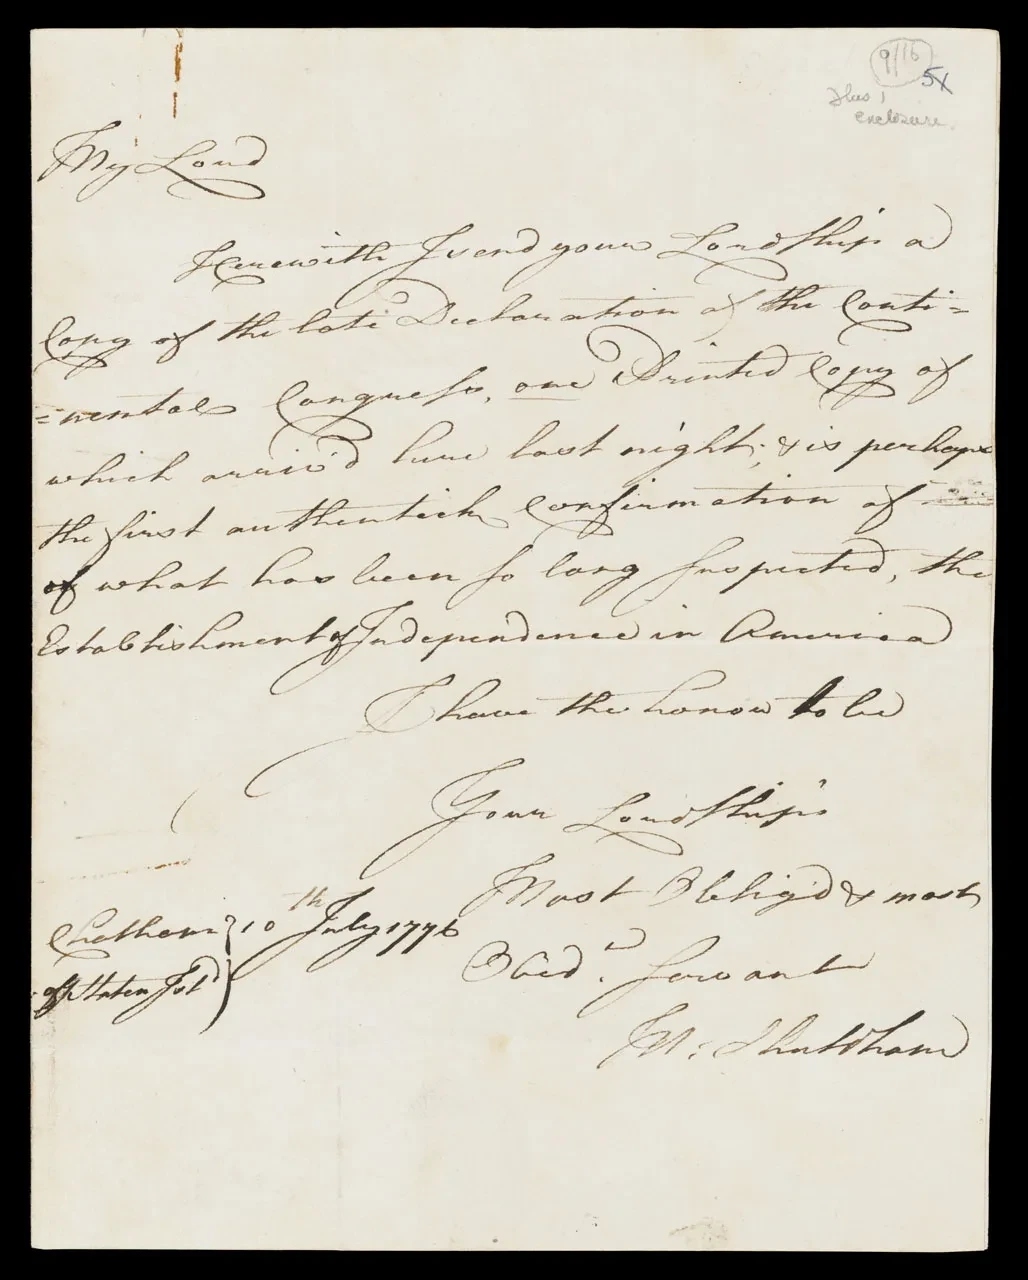 9/16
5X
Plus 1
enclosure.
My Lord
Herewith I send your Lordship a
Copy of the late Declaration of the Conti=
=nental Congress, one Printed Copy of
which arriv'd here last night; & is perhaps
the first authentick Confirmation of
of what has been so long suspected, the
Establishment of Independence in America
I have the honor to be
Your Lordship's
Most Oblig'd & most
Obed.t Servant
M: Shuldham
Chatham } 10th July 1776
off Staten Isld }